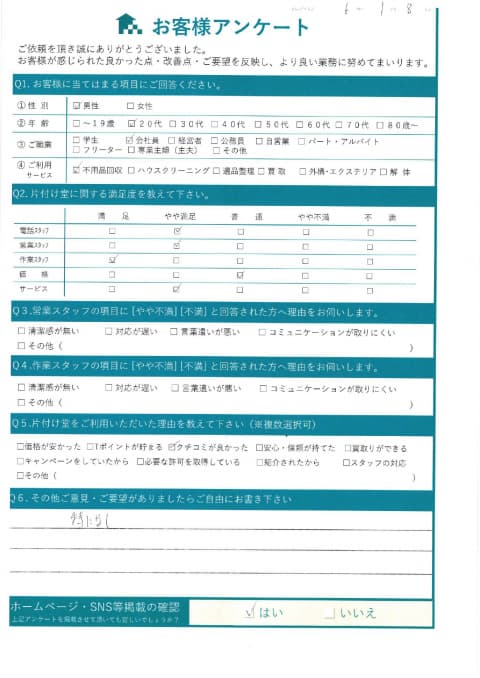 6 1 8
お客様アンケート
ご依頼を頂き誠にありがとうございました。
お客様が感じられた良かった点・改善点・ご要望を反映し、より良い業務に努めてまいります。
Q1. お客様に当てはまる項目にご回答ください。
①性別 ☑男性 □女性
②年齢 □～19歳 ☑20代 □30代 □40代 □50代 □60代 □70代 □80歳～
③ご職業 □学生 ☑会社員 □経営者 □公務員 □自営業 □パート・アルバイト
□フリーター □専業主婦（主夫） □その他
④ご利用サービス ☑不用品回収 □ハウスクリーニング □遺品整理 □買取 □外構・エクステリア □解体
Q2. 片付け堂に関する満足度を教えて下さい。
満足 やや満足 普通 やや不満 不満
電話スタッフ □ ☑ □ □ □
営業スタッフ □ ☑ □ □ □
作業スタッフ ☑ □ □ □ □
価格 □ □ ☑ □ □
サービス □ ☑ □ □ □
Q3.営業スタッフの項目に[やや不満][不満]と回答された方へ理由をお伺いします。
□清潔感が無い □対応が遅い □言葉遣いが悪い □コミュニケーションが取りにくい
□その他（ ）
Q4.作業スタッフの項目に[やや不満][不満]と回答された方へ理由をお伺いします。
□清潔感が無い □対応が遅い □言葉遣いが悪い □コミュニケーションが取りにくい
□その他（ ）
Q5.片付け堂をご利用いただいた理由を教えて下さい（※複数選択可）
□価格が安かった □Tポイントが貯まる ☑クチコミが良かった □安心・信頼が持てた □買取りができる
□キャンペーンをしていたから □必要な許可を取得している □紹介されたから □スタッフの対応
□その他（ ）
Q6. その他ご意見・ご要望がありましたらご自由にお書き下さい
特になし
ホームページ・SNS等掲載の確認
上記アンケートを掲載させて頂いても宜しいでしょうか？
☑はい □いいえ